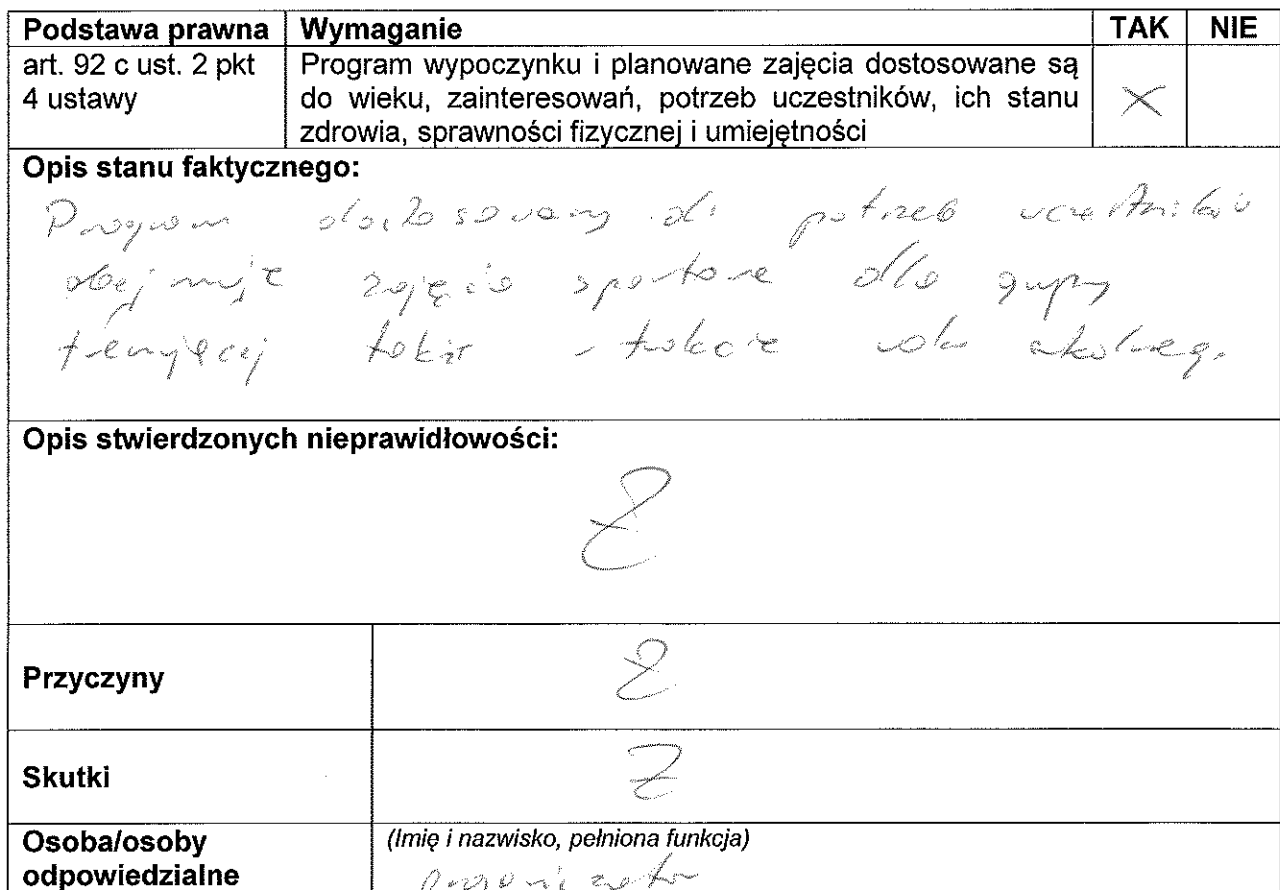 Podstawa prawna Wymaganie TAK NIE
art. 92 c ust. 2 pkt 4 ustawy
Program wypoczynku i planowane zajęcia dostosowane są
do wieku, zainteresowań, potrzeb uczestników, ich stanu
zdrowia, sprawności fizycznej i umiejętności
X
Opis stanu faktycznego:
Program dostosowany do potrzeb uczestników
obejmuje zajęcia sportowe dla grupy
trenującej także w trakcie roku szkolnego.
Opis stwierdzonych nieprawidłowości:
Przyczyny
Skutki
Osoba/osoby
odpowiedzialne
(Imię i nazwisko, pełniona funkcja)
organizator